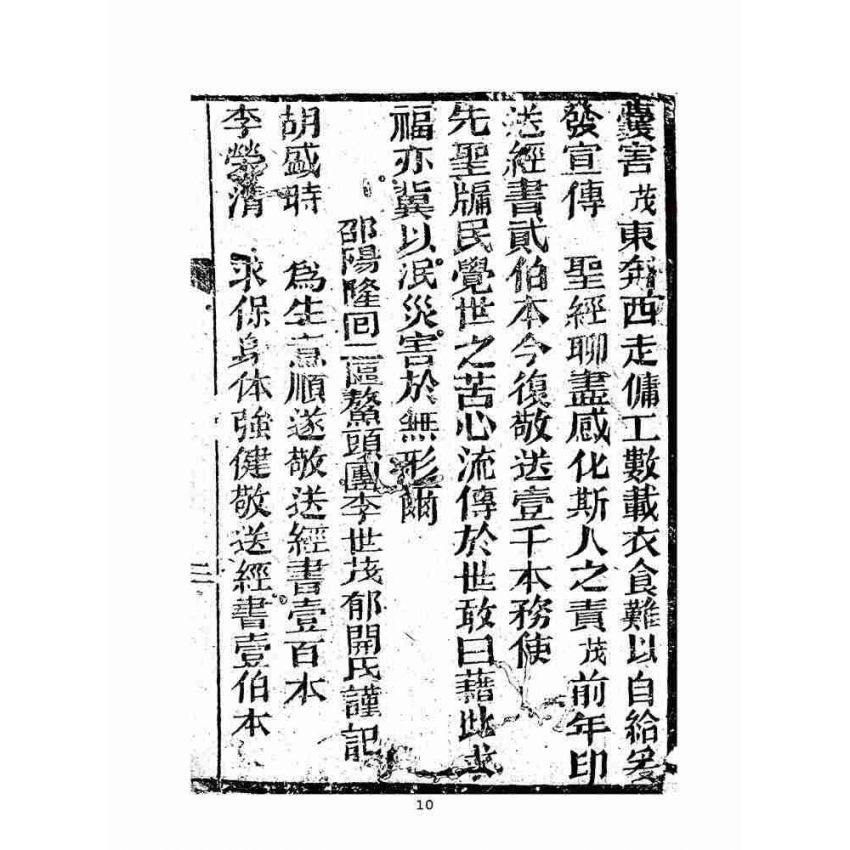 害茂東奔西走傭工數載衣食難以自給
發宣傳　聖經聊盡感化斯人之責茂前年印
送經書貳伯本今復敬送壹千本務使
先聖牖民覺世之苦心流傳於世敢曰藉此求
福亦冀以泯災害於無形爾
邵陽隆回二區鰲頭團李世茂郁開氏謹記
胡盛時　為生意順遂敬送經書壹百本
李榮清　求保身体強健敬送經書壹伯本
二
10